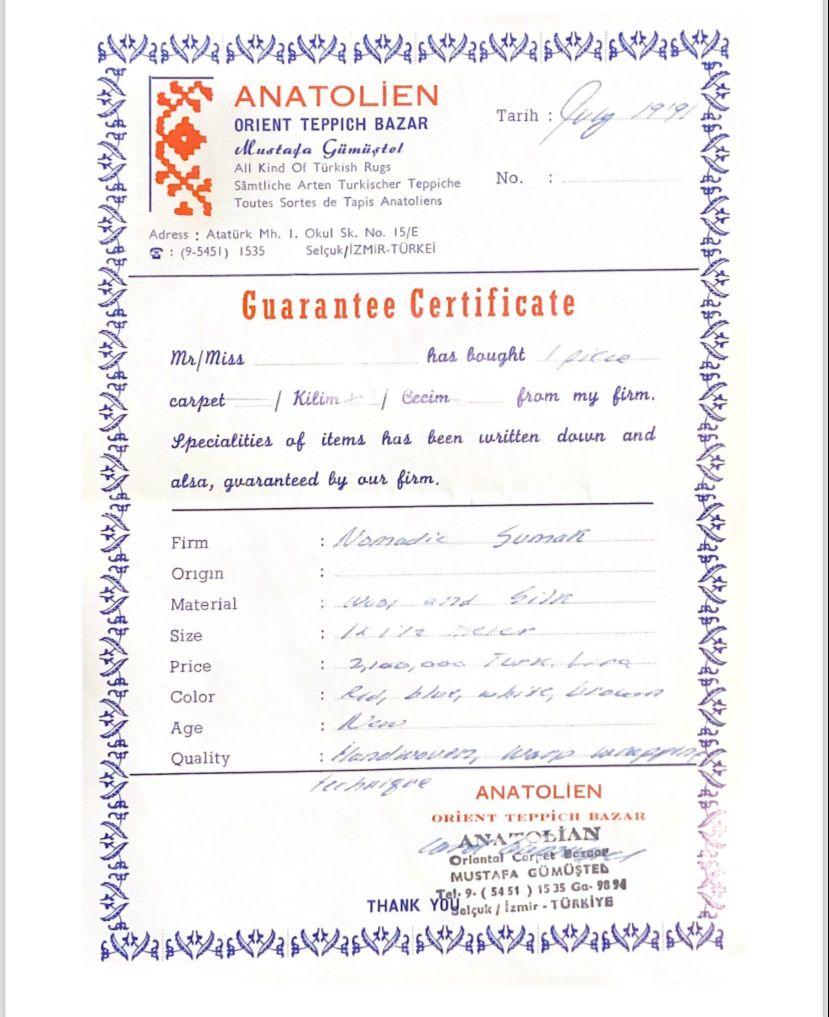 ANATOLİEN
ORIENT TEPPICH BAZAR
Mustafa Gümüştel
All Kind Of Türkish Rugs
Sämtliche Arten Turkischer Teppiche
Toutes Sortes de Tapis Anatoliens
Tarih : July 1991
No. :
Adress : Atatürk Mh. 1. Okul Sk. No. 15/E
☎ : (9-5451) 1535 Selçuk/İZMİR-TÜRKEİ
Guarantee Certificate
Mr/Miss has bought 1 piece
carpet / Kilim + / Cecim from my firm.
Specialities of items has been written down and
alsa, guaranteed by our firm.
Firm : Nomadic Sumak
Origin :
Material : wool and Silk
Size :
Price : 2,100,000 Turk. Lira
Color : Red, blue, white, brown
Age : New
Quality : Handwoven, warp wrapping
technique
ANATOLİEN
ORİENT TEPPİCH BAZAR
ANATOLİAN
Oriantal Carpet Bazaar
MUSTAFA GÜMÜŞTEL
Tel: 9- ( 5451 ) 1535 Ga- 9894
THANK YOU
Selçuk / İzmir - TÜRKİYE